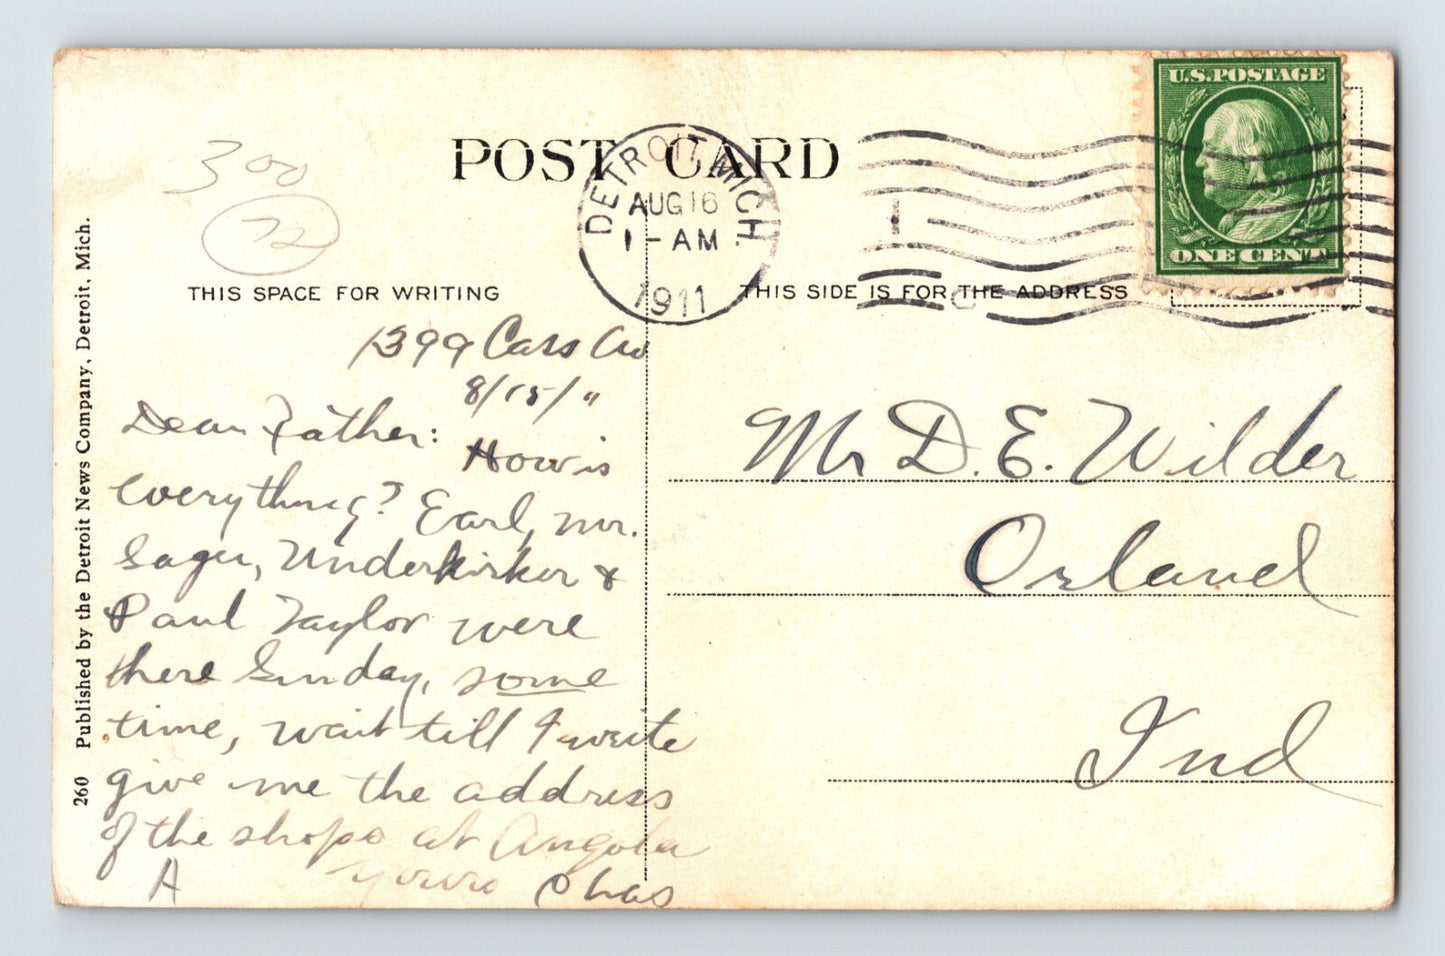 300
72
POST CARD
DETROIT, MICH.
AUG 16
1 - AM
1911
1
U.S. POSTAGE
ONE CENT
THIS SPACE FOR WRITING
THIS SIDE IS FOR THE ADDRESS
1399 Cass Av
8/15/11
Dear Father:
How is
everything? Earl, Mr.
Sager, Underkirker &
Paul Taylor were
there Sunday, some
time, wait till I write
give me the address
of the shops at Angola
A
yours Chas
Mr D. E. Wilder
Orland
Ind
260 Published by the Detroit News Company, Detroit, Mich.